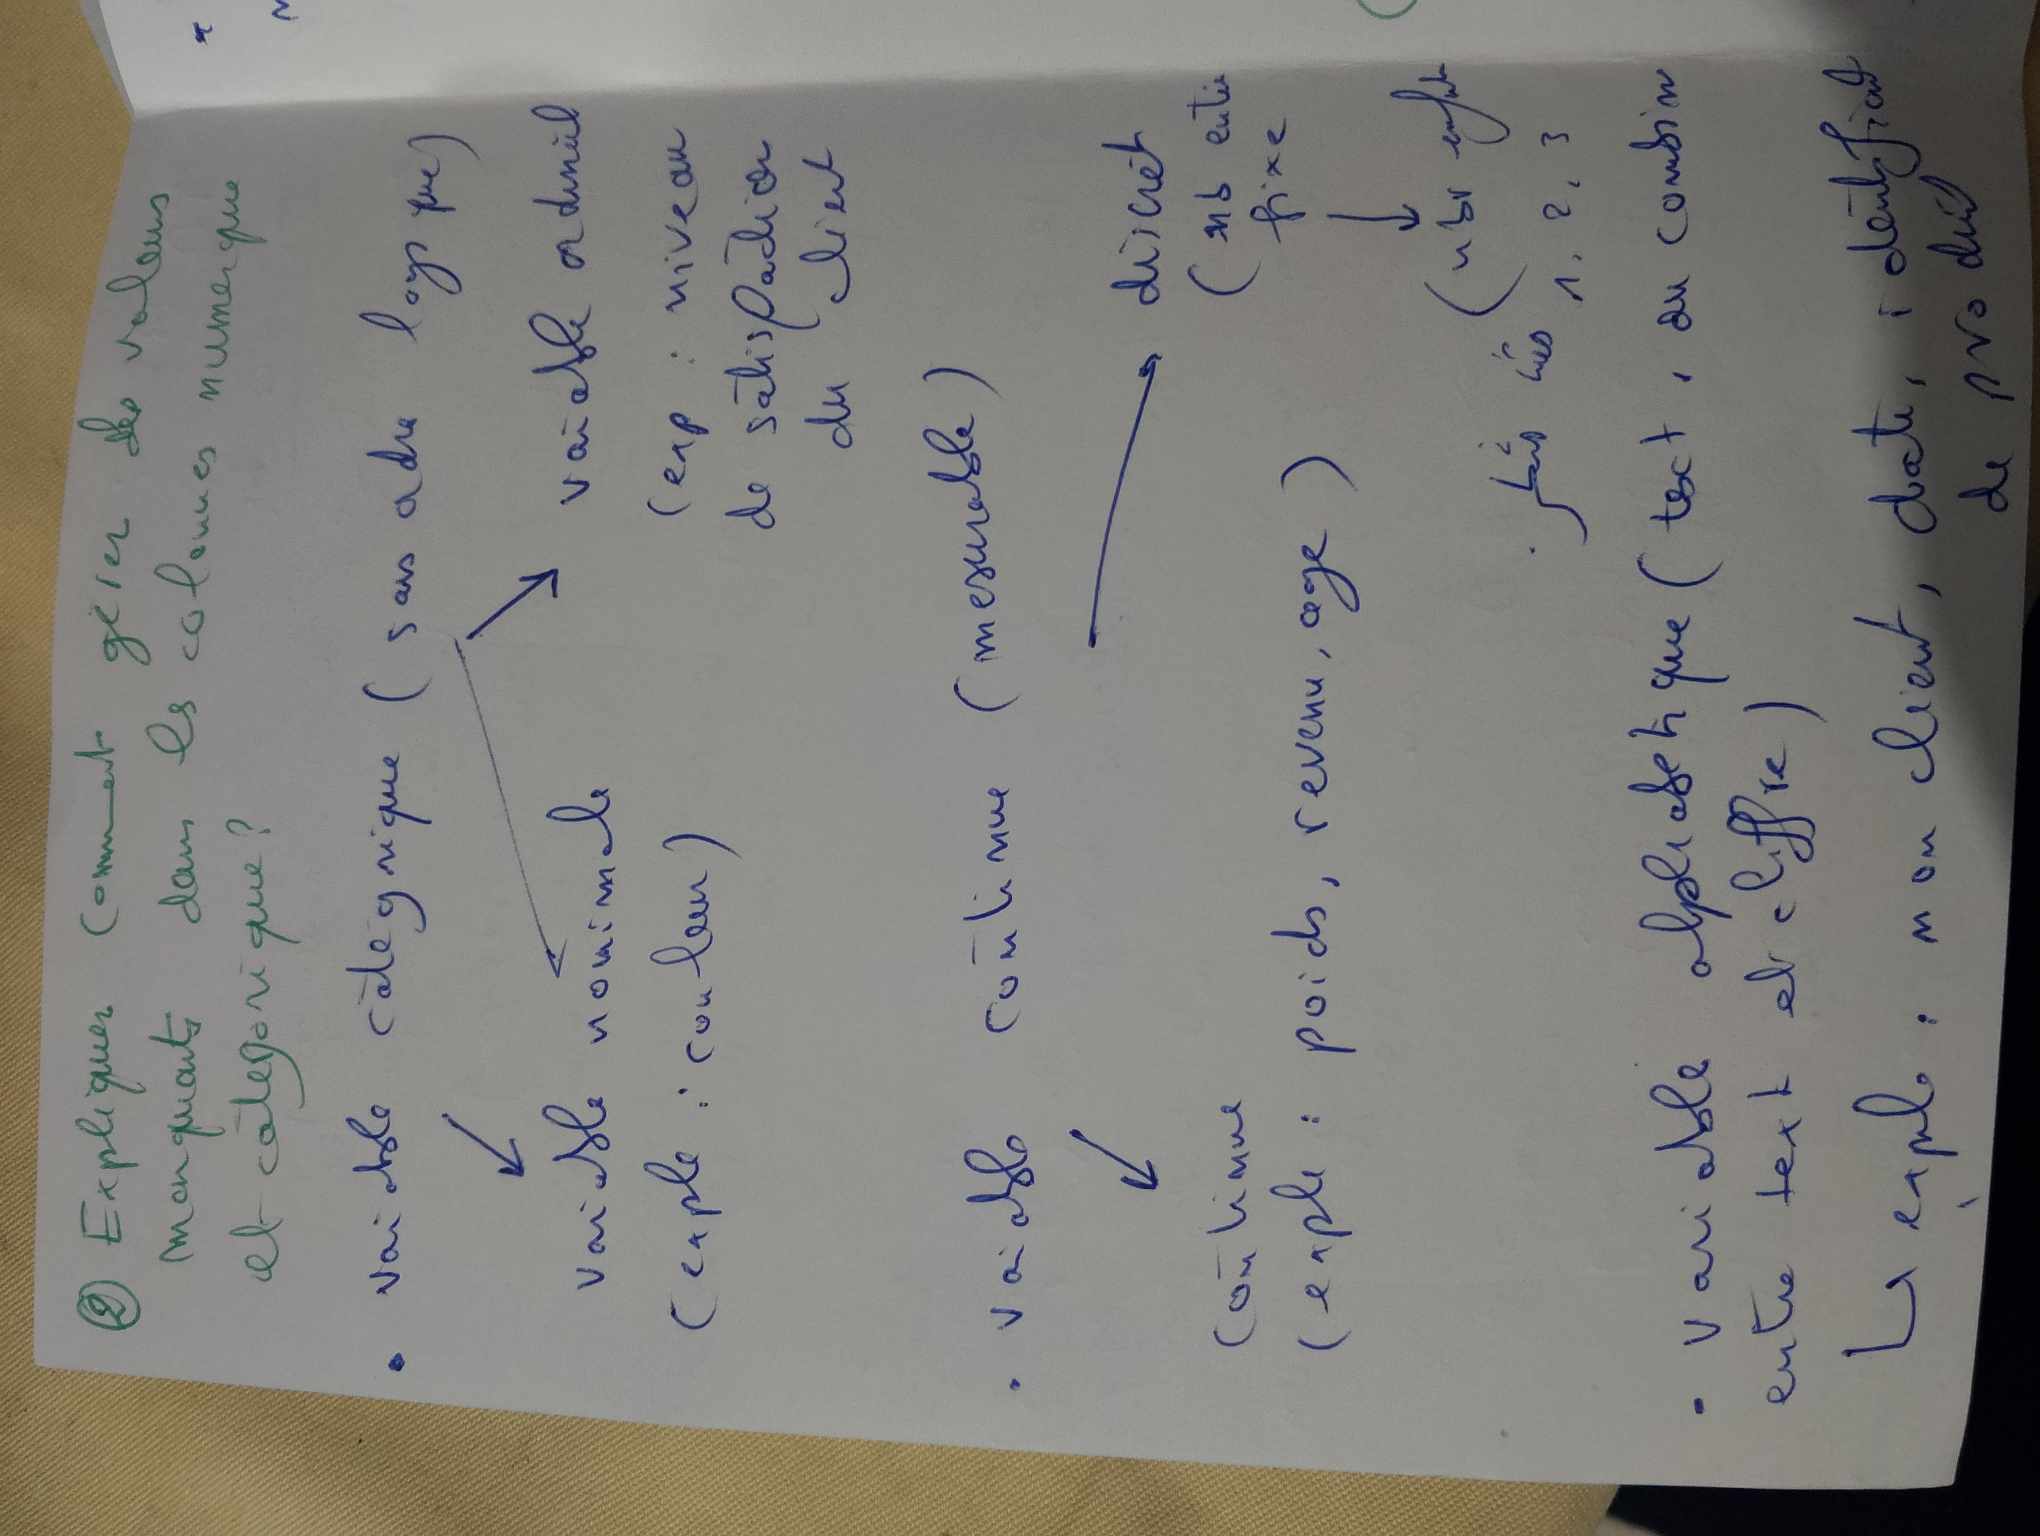 ② Expliquer comment gérer des valeurs
manquants dans les colonnes numerique
et catégorique?
• variable catégorique (sans ordre logique)
variable nominale
variable ordinal
(exple : couleur)
(exp : niveau
de satisfaction
du client
• variable continue (mesurable)
discret
continue
(nb entie
fixe
(exple : poids, revenu, age)
(nbr enfat
1, 2, 3
- variable alphabetique (text, ou combin
entre text et chiffre)
↳ exple : nom client, date, identifiant
de produit